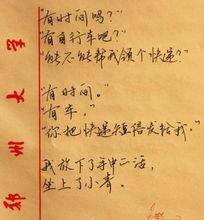 郑州大学
"有时间吗?"
"有自行车吧?"
"能不能帮我领个快递?"
"有时间。"
"有车,"
"你把快递短信发给我。"
我放下了手中二活,
坐上了小